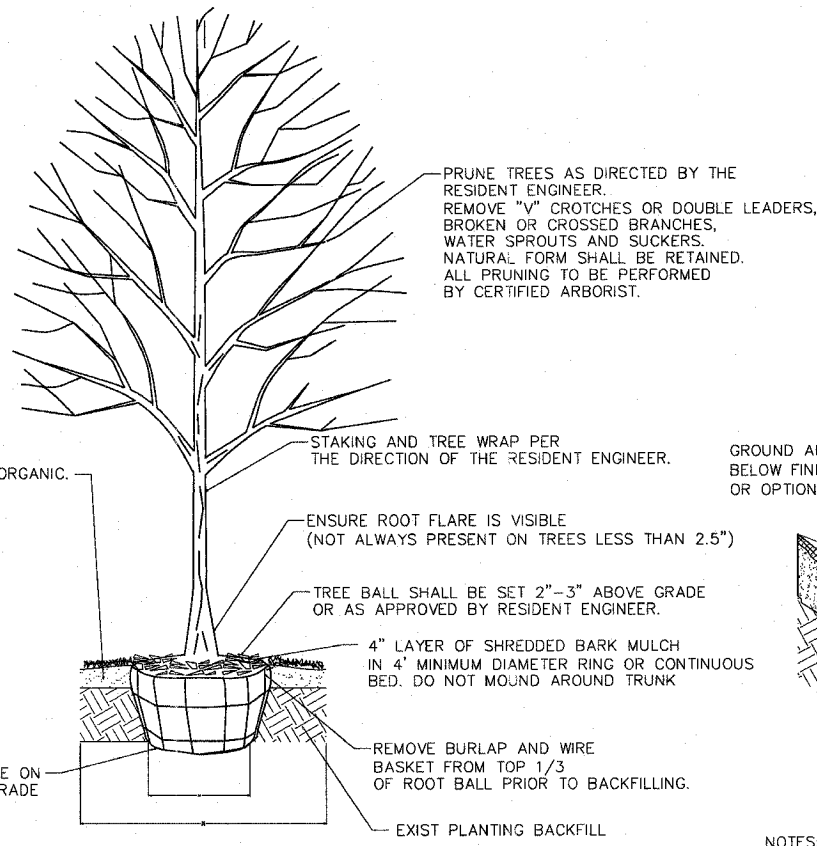 PRUNE TREES AS DIRECTED BY THE
RESIDENT ENGINEER.
REMOVE "V" CROTCHES OR DOUBLE LEADERS,
BROKEN OR CROSSED BRANCHES,
WATER SPROUTS AND SUCKERS.
NATURAL FORM SHALL BE RETAINED.
ALL PRUNING TO BE PERFORMED
BY CERTIFIED ARBORIST.
STAKING AND TREE WRAP PER
THE DIRECTION OF THE RESIDENT ENGINEER.
ORGANIC.
GROUND
BELOW
OR
ENSURE ROOT FLARE IS VISIBLE
(NOT ALWAYS PRESENT ON TREES LESS THAN 2.5")
TREE BALL SHALL BE SET 2"-3" ABOVE GRADE
OR AS APPROVED BY RESIDENT ENGINEER.
4" LAYER OF SHREDDED BARK MULCH
IN 4' MINIMUM DIAMETER RING OR CONTINUOUS
BED. DO NOT MOUND AROUND TRUNK
REMOVE BURLAP AND WIRE
BASKET FROM TOP 1/3
OF ROOT BALL PRIOR TO BACKFILLING.
ON
EXIST PLANTING BACKFILL
NOTES: